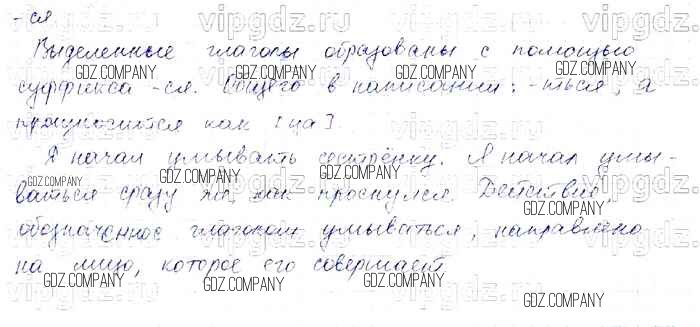 -ся
Выделенные глаголы образованы с помощью
суффикса -ся. Общего в написании: -ться, а
произносится как [ца].
Я начал умывать сестрёнку. Я начал умы-
ваться сразу же, как проснулся. Действие,
обозначенное глаголом умываться, направлено
на лицо, которое его совершает.